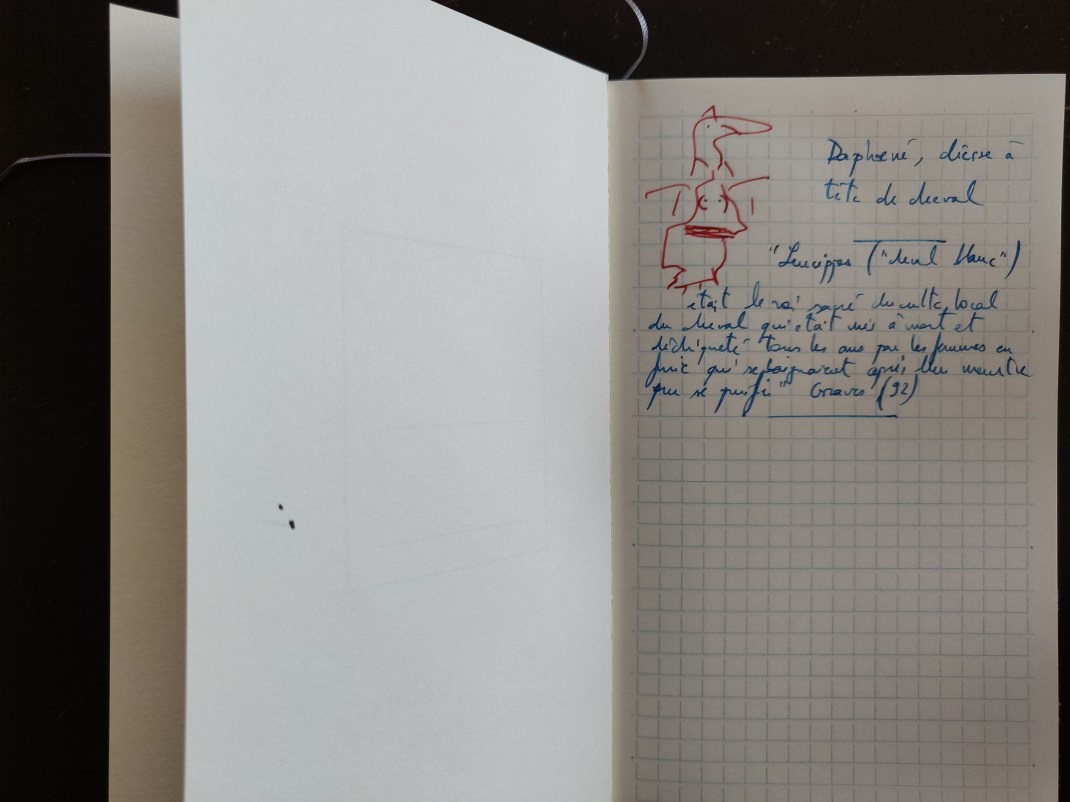 Daphœné, déesse à
tête de cheval
"Leucippos ("cheval blanc")
était le roi sacré du culte local
du cheval qui était mis à mort et
déchiqueté tous les ans par les femmes en
furie qui se baignaient après leur meurtre
pour se purifier" Graves (92)